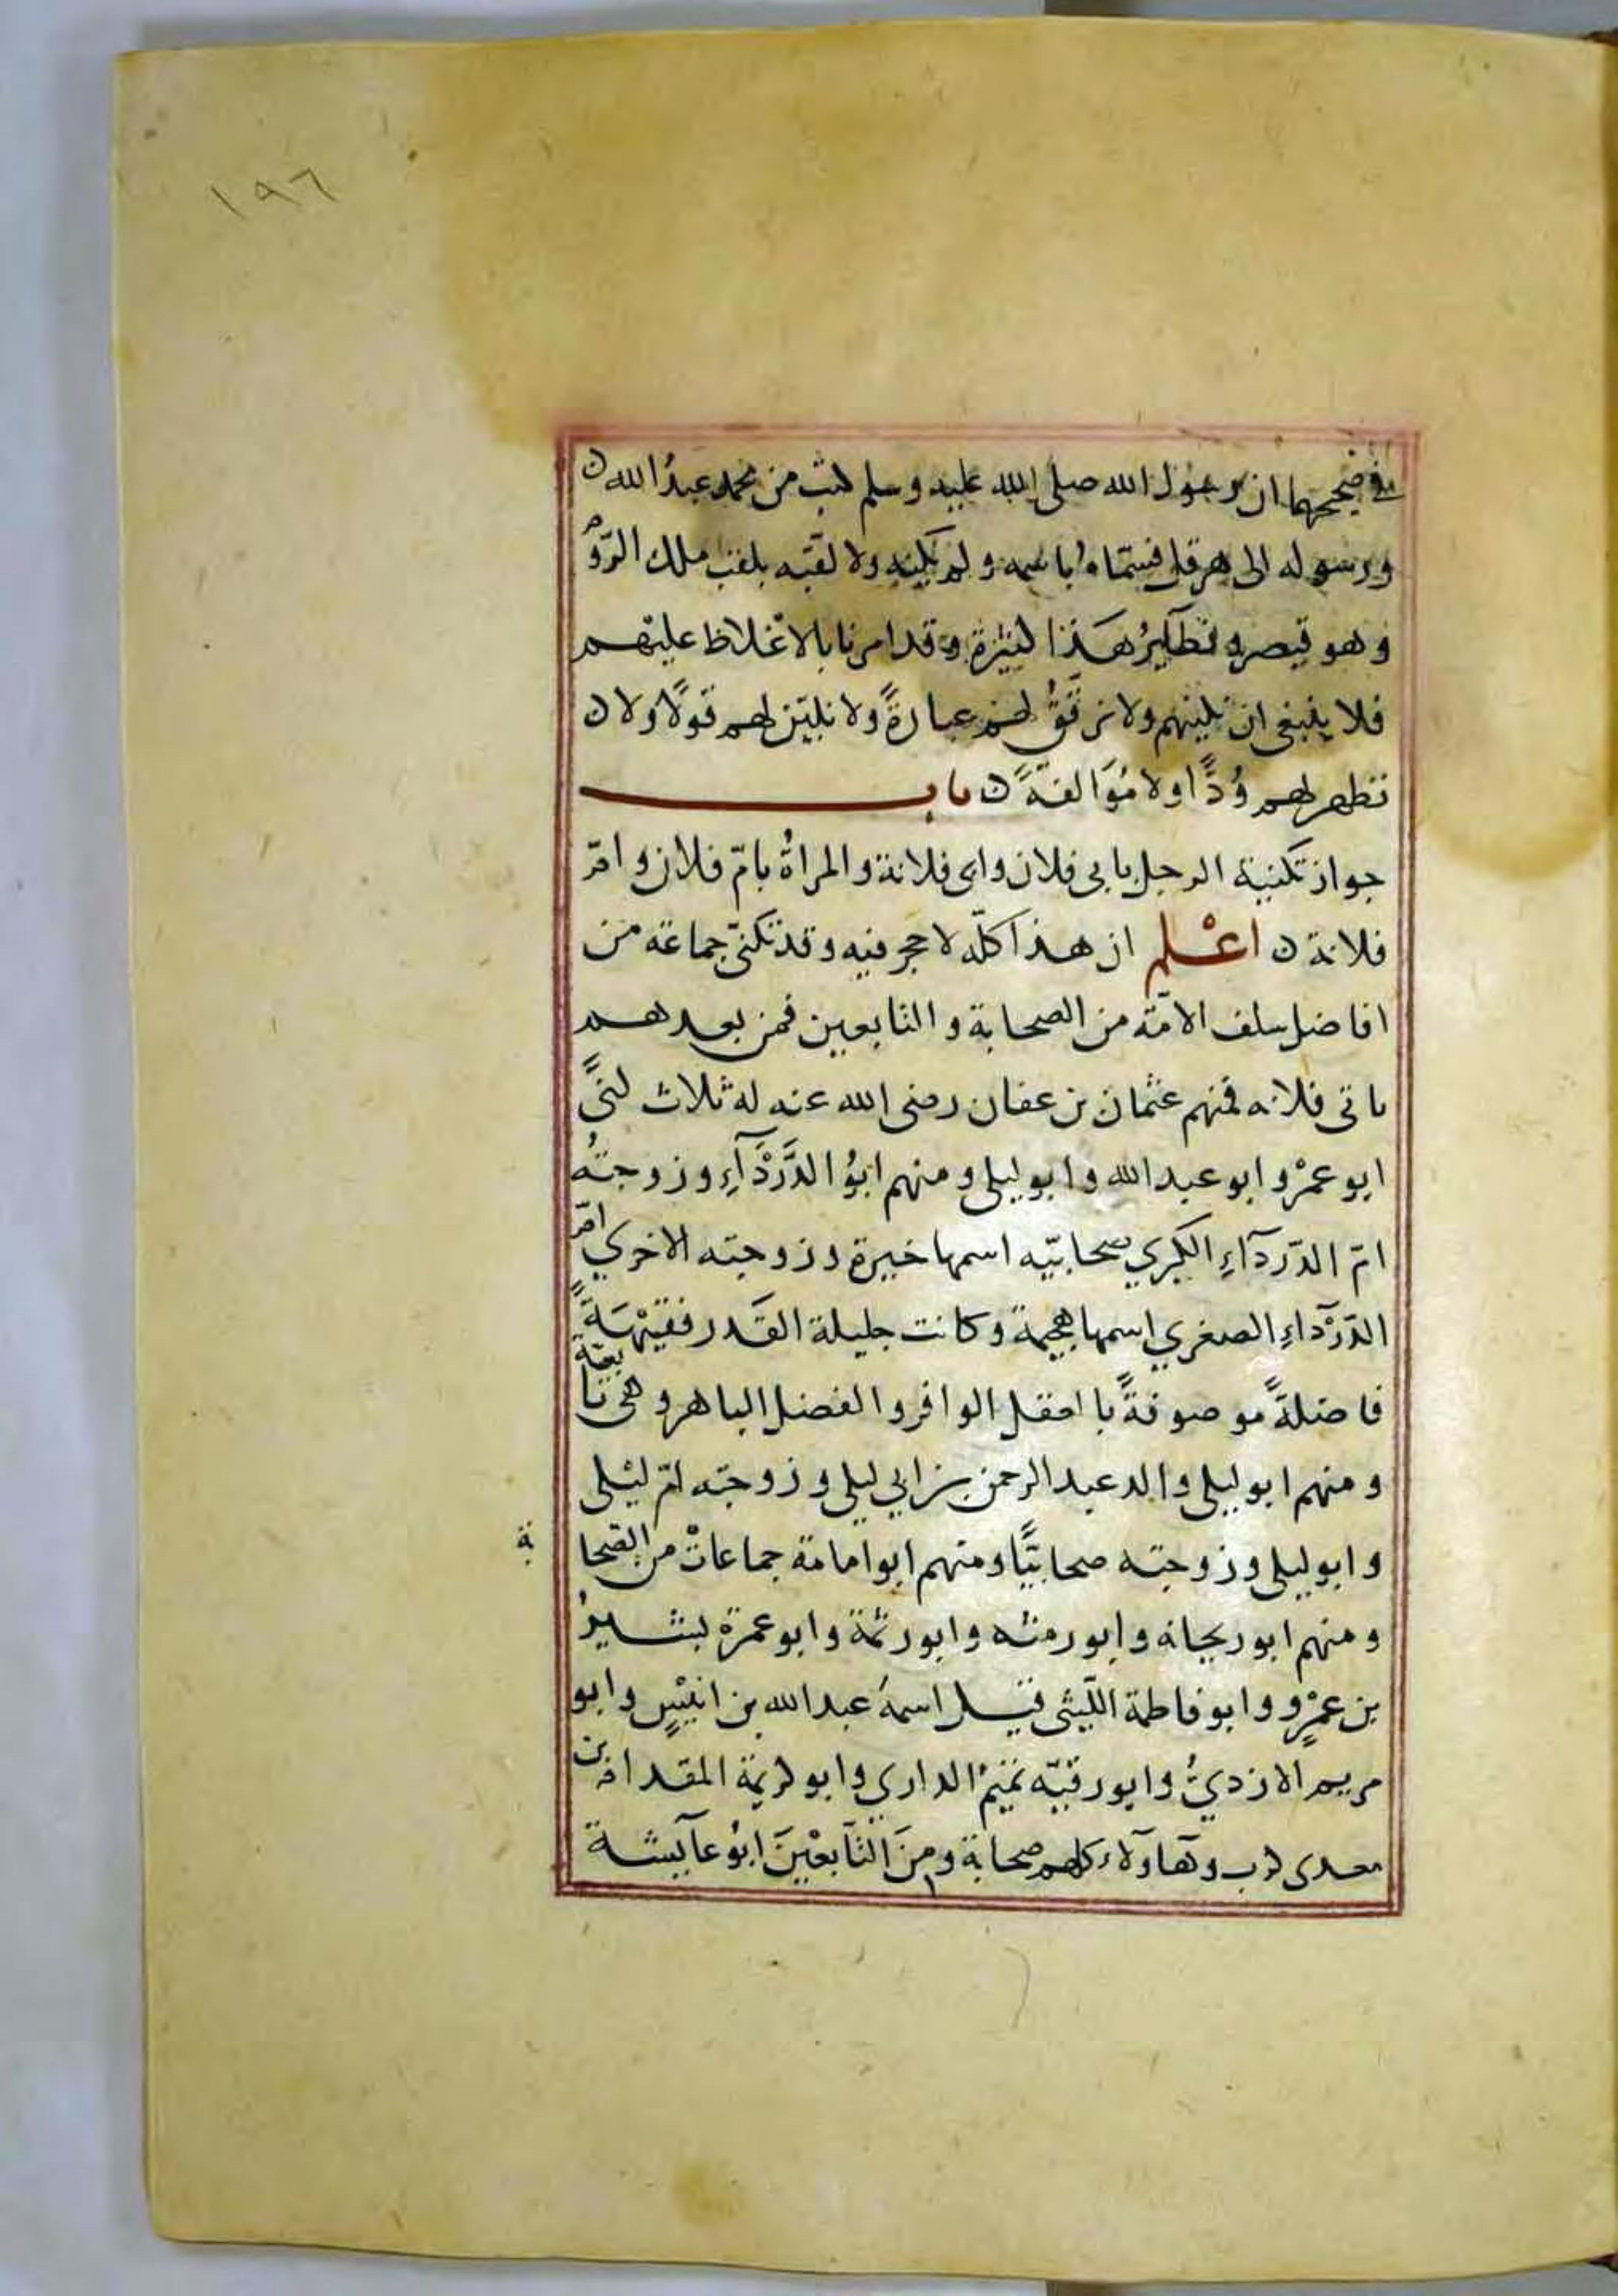 ١٩٦
في صحيحهما ان رسول الله صلى الله عليه وسلم كتب من محمد عبدُ الله ن
ورسوله الى هرقل فسمّاهُ باسمه ولم يكنِه ولا لقّبه بلقب ملك الرّوم
وهو قيصر ونظَآيرُ هَذا كثيرة وقد امرنا بالاغلاظ عليْهم
فلا ينبغي ان نكنيهم ولا نرقّقُ لهم عبارةً ولا نليّن لهم قولًا ولا ن
نظهر لهم وُدًّا ولا مُوَالفةً ن باب
جواز تكنية الرجل بابى فلان وابى فلانة والمراةُ بامّ فلان وامّ
فلانة ن اعْلم ان هذا كلّه لا حجر فيه وقد تكنّى جماعة من
افاضل سلف الامّة من الصحابة والتابعين فمن بعدهم
بابى فلانه فمنهم عثمان بن عفان رضى الله عنه له ثلاث كنىً
ابو عمْرو وابو عبد الله وابو ليلى ومنهم ابوُ الدَّرْدَآءِ وزوجتهُ
امّ الدّردآءِ الكبري صحابيّه اسمها خيرة وزوجته الاخري امّ
الدّرْدآءِ الصغري اسمها هجيمة وكانت جليلة القَدر فقيْهَةً
فاضلةً موصوفةً با لعقل الوافر والفضل الباهر وهى تا بعيّة
ومنهم ابو ليلى والد عبد الرحمن بن ابي ليلى وزوجته امّ ليْلى
وابو ليلى وزوجته صحابيّا ومنهم ابو امامة جماعاتْ من الصّحا بة
ومنهم ابو ريحانه وابو رمثه وابو رئمة وابو عمرة بشيرُ
بن عمْرٍو وابو فاطمة اللّيثى قيل اسمهُ عبد الله بن انيْسٍ وابو
مريم الازديُّ وابو رقيّه تميمُ الداري وابو كريمة المقدام بن
معدى كرب وهآولآء كلهم صحابة ومِنَ التّابعْينَ ابوُ عآيشة